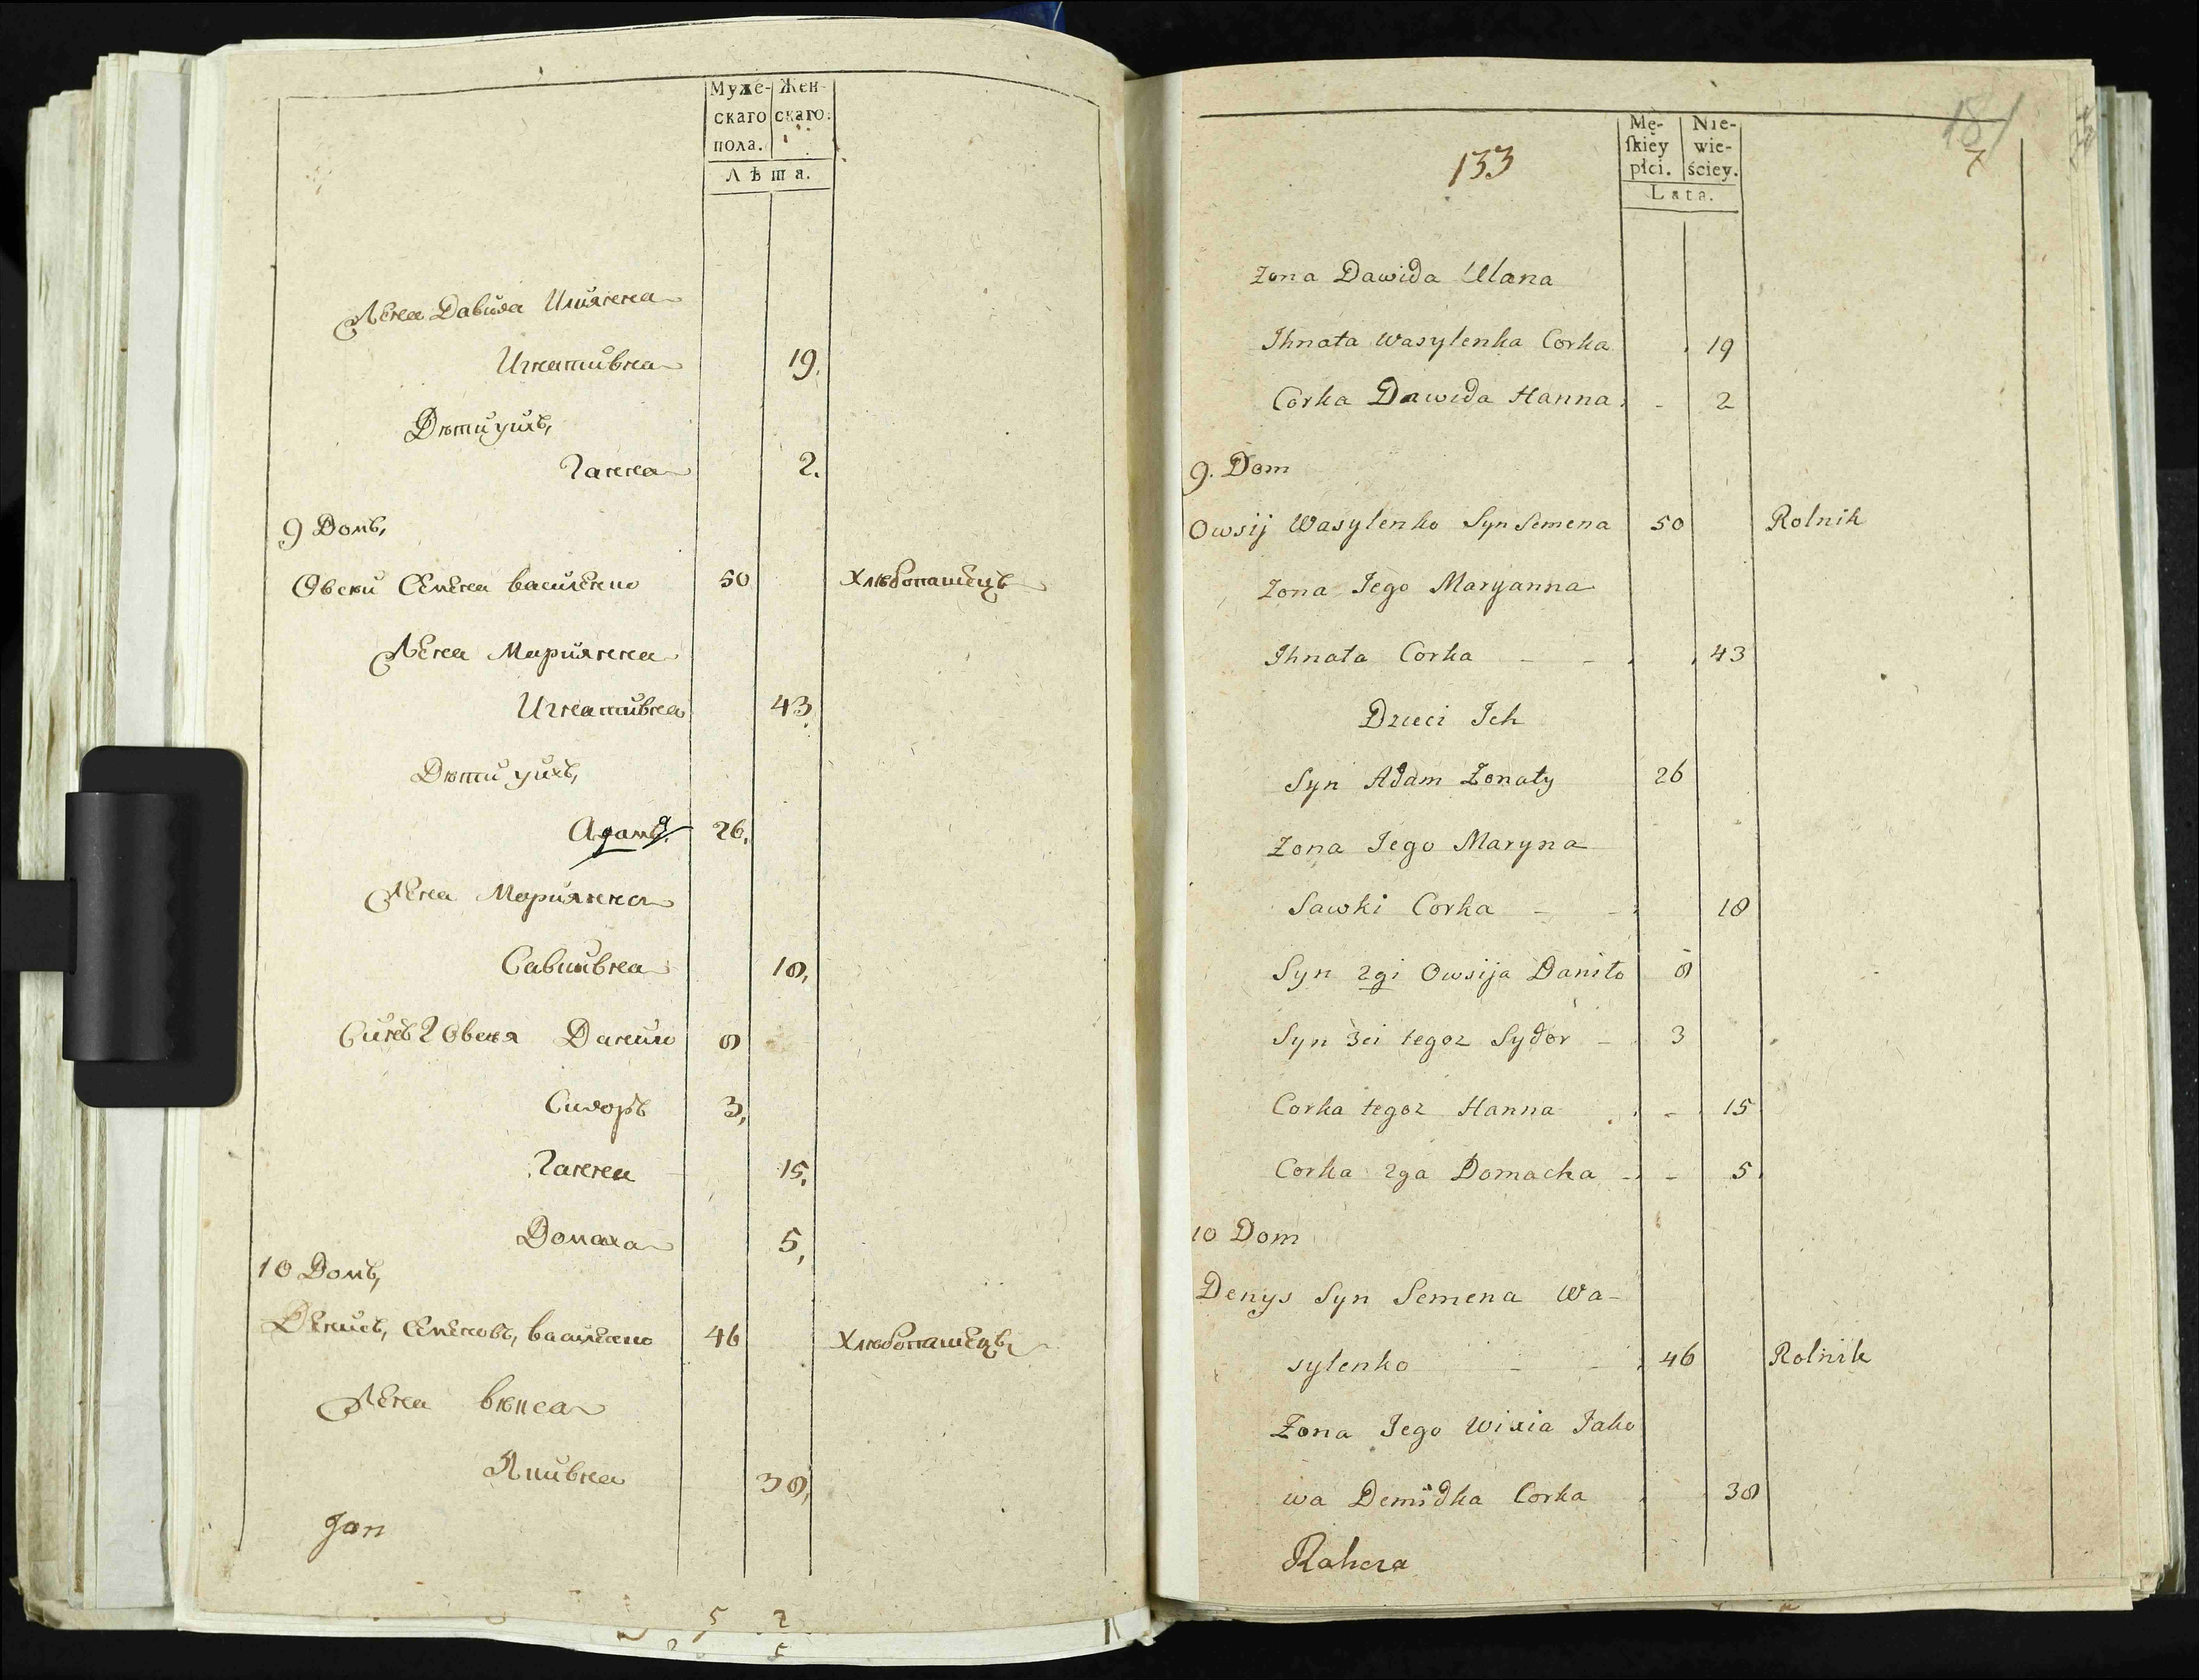 Муже- Жен-
скаго скаго.
пола.
Лѣта.
Жена Давида Улиянна
Игнативна 19.
Дѣти ихъ,
Ганна 2.
9 Домъ,
Овсѣй Семена Василенко 50 Хлѣбопашецъ
Жена Мариянна
Игнативна 43
Дѣти ихъ,
Адамъ 26,
Жена Мариянна
Савишвна 18,
Синъ 2 Овсѣя Данило 8
Сидоръ 3,
Ганна 15,
Домаха 5,
10 Домъ,
Денисъ, Семеновъ, Василенко 46 Хлѣбопашецъ
Жена
Якивна 38,
Jan
5 2
133
181
7
Mę- Nie-
ſkiey wie-
płci. ściey.
Lata.
Zona Dawida Ulana
Ihnata Wasylenka Corka 19
Corka Dawida Hanna. - 2
9. Dom
Owsij Wasylenko Syn Semena 50 Rolnik
Zona Jego Maryanna
Ihnata Corka - - 43
Dzieci Ich
Syn Adam Żonaty 26
Zona Jego Maryna
Sawki Corka - - 18
Syn 2gi Owsija Daniło 8
Syn 3ci tegoz Sydor - 3
Corka tegoz Hanna - 15
Corka 2ga Domacha - - 5
10 Dom
Denys Syn Semena Wa-
sylenko - - 46 Rolnik
Żona Jego Wixia Jako
wa Demidka Corka 38